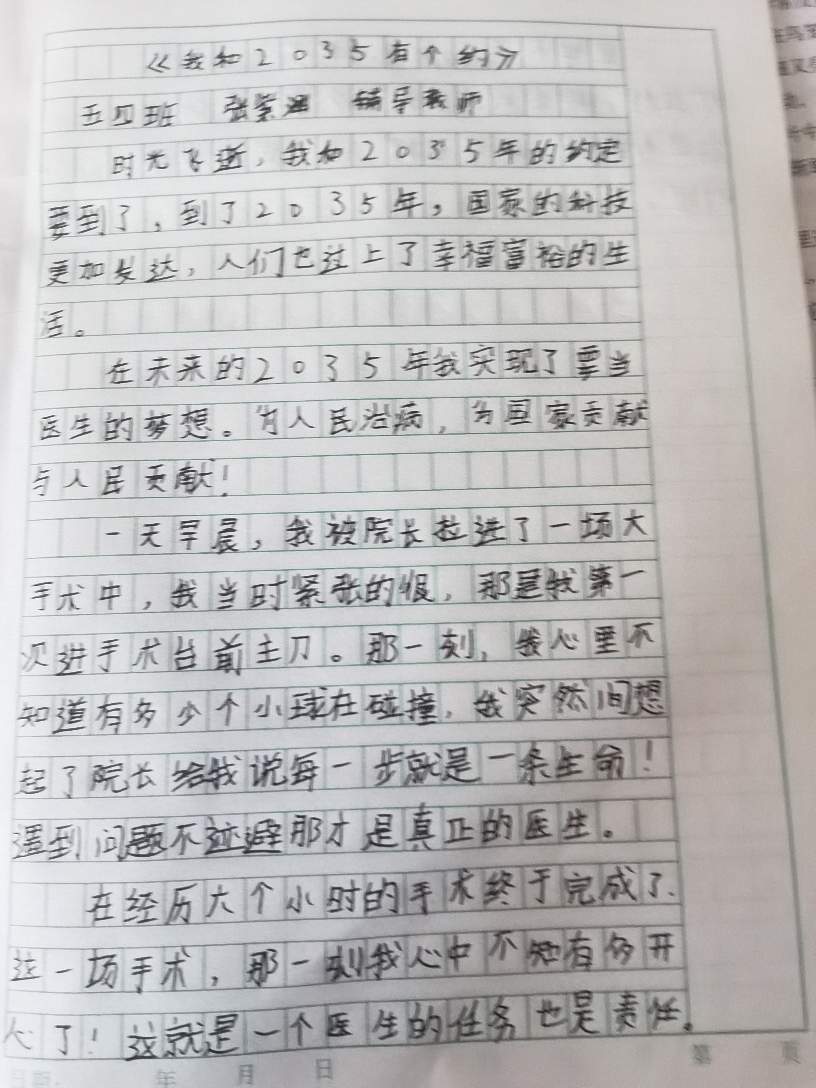 《我和2035有个约》
五四班 张紫 辅导教师
时光飞逝，我和2035年的约定
要到了，到了2035年，国家的科技
更加发达，人们也过上了幸福富裕的生
活。
在未来的2035年我实现了要当
医生的梦想。为人民治病，为国家贡献
与人民贡献！
一天早晨，我被院长拉进了一场大
手术中，我当时紧张的很，那是我第一
次进手术台前主刀。那一刻，我心里不
知道有多少个小球在碰撞，我突然间想
起了院长给我说每一步就是一条生命！
遇到问题不逃避那才是真正的医生。
在经历六个小时的手术终于完成了
这一场手术，那一刻我心中不知有多开
心了！这就是一个医生的任务也是责任。
年 月 日
第 页